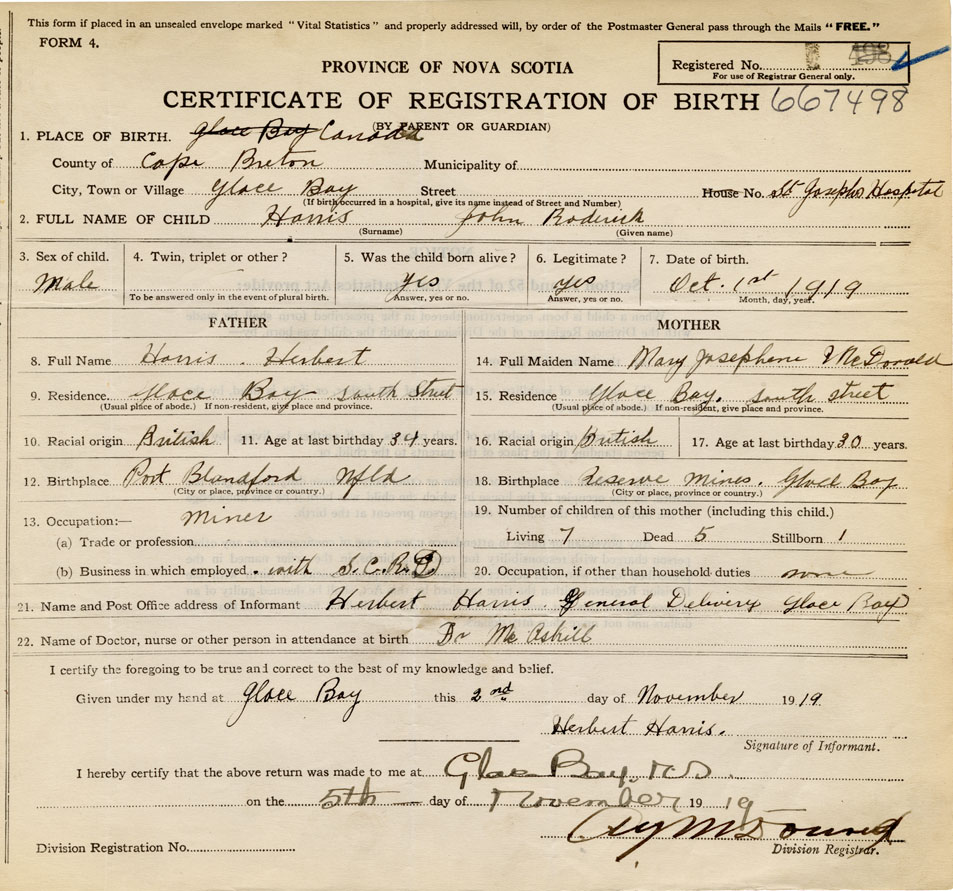 This form if placed in an unsealed envelope marked "Vital Statistics" and properly addressed will, by order of the Postmaster General pass through the Mails "FREE."
FORM 4.
Registered No.
For use of Registrar General only.
PROVINCE OF NOVA SCOTIA
CERTIFICATE OF REGISTRATION OF BIRTH 667498
(BY PARENT OR GUARDIAN)
1. PLACE OF BIRTH. Glace Bay Canada
County of Cape Breton Municipality of
City, Town or Village Glace Bay Street House No. St Josephs Hospital
(If birth occurred in a hospital, give its name instead of Street and Number)
2. FULL NAME OF CHILD Harris John Roderick
(Surname) (Given name)
3. Sex of child. 4. Twin, triplet or other? 5. Was the child born alive? 6. Legitimate? 7. Date of birth.
Male yes yes Oct. 1st 1919
To be answered only in the event of plural birth. Answer, yes or no. Answer, yes or no. Month, day, year.
FATHER MOTHER
8. Full Name Harris. Herbert 14. Full Maiden Name Mary Josephene McDonald
9. Residence. Glace Bay South Street 15. Residence Glace Bay. South street
(Usual place of abode.) If non-resident, give place and province. (Usual place of abode.) If non-resident, give place and province.
10. Racial origin British 11. Age at last birthday 34 years. 16. Racial origin British 17. Age at last birthday 30 years.
12. Birthplace Port Blandford Nfld 18. Birthplace Reserve Mines. Glace Bay
(City or place, province or country.) (City or place, province or country.)
13. Occupation:— Miner 19. Number of children of this mother (including this child.)
(a) Trade or profession Living 7 Dead 5 Stillborn 1
(b) Business in which employed. with 20. Occupation, if other than household duties none
21. Name and Post Office address of Informant Herbert Harris. General Delivery Glace Bay
22. Name of Doctor, nurse or other person in attendance at birth Dr McAskill
I certify the foregoing to be true and correct to the best of my knowledge and belief.
Given under my hand at Glace Bay this 2nd day of November 1919
Herbert Harris.
Signature of Informant.
I hereby certify that the above return was made to me at Glace Bay. N.S.
on the 5th day of November 1919
Division Registration No. Division Registrar.